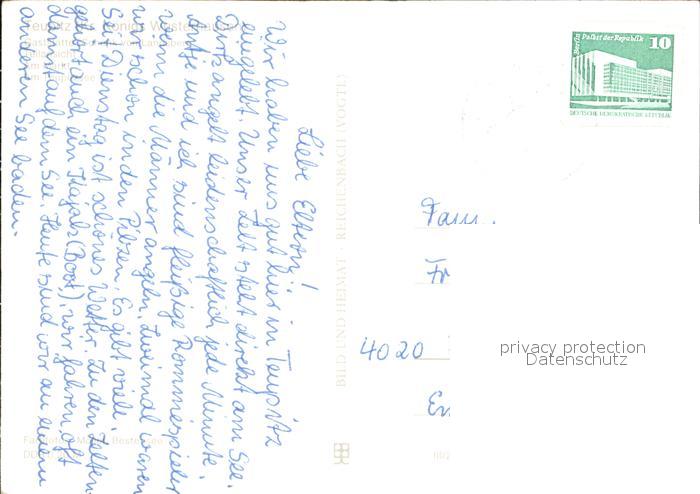 Liebe Eltern!
Wir haben uns gut hier in Teupitz
eingelebt. Unser Zelt steht direkt am See.
Dirk angelt leidenschaftlich jede Minute.
Antje und ich sind fleißige Rommespieler
wenn die Männer angeln. Zweimal waren
wir schon in den Pilzen. Es gibt viele.
Seit Dienstag ist schönes Wetter. Zu den Zelten
gehört auch ein (Boot), wir fahren oft
damit auf dem See. Heute sind wir an einem
anderen See baden.
BILD UND HEIMAT · REICHENBACH (VOGTL)
Berlin Palast der Republik 10
DEUTSCHE DEMOKRATISCHE REPUBLIK
Fam.
Fr
4020
privacy protection
Datenschutz